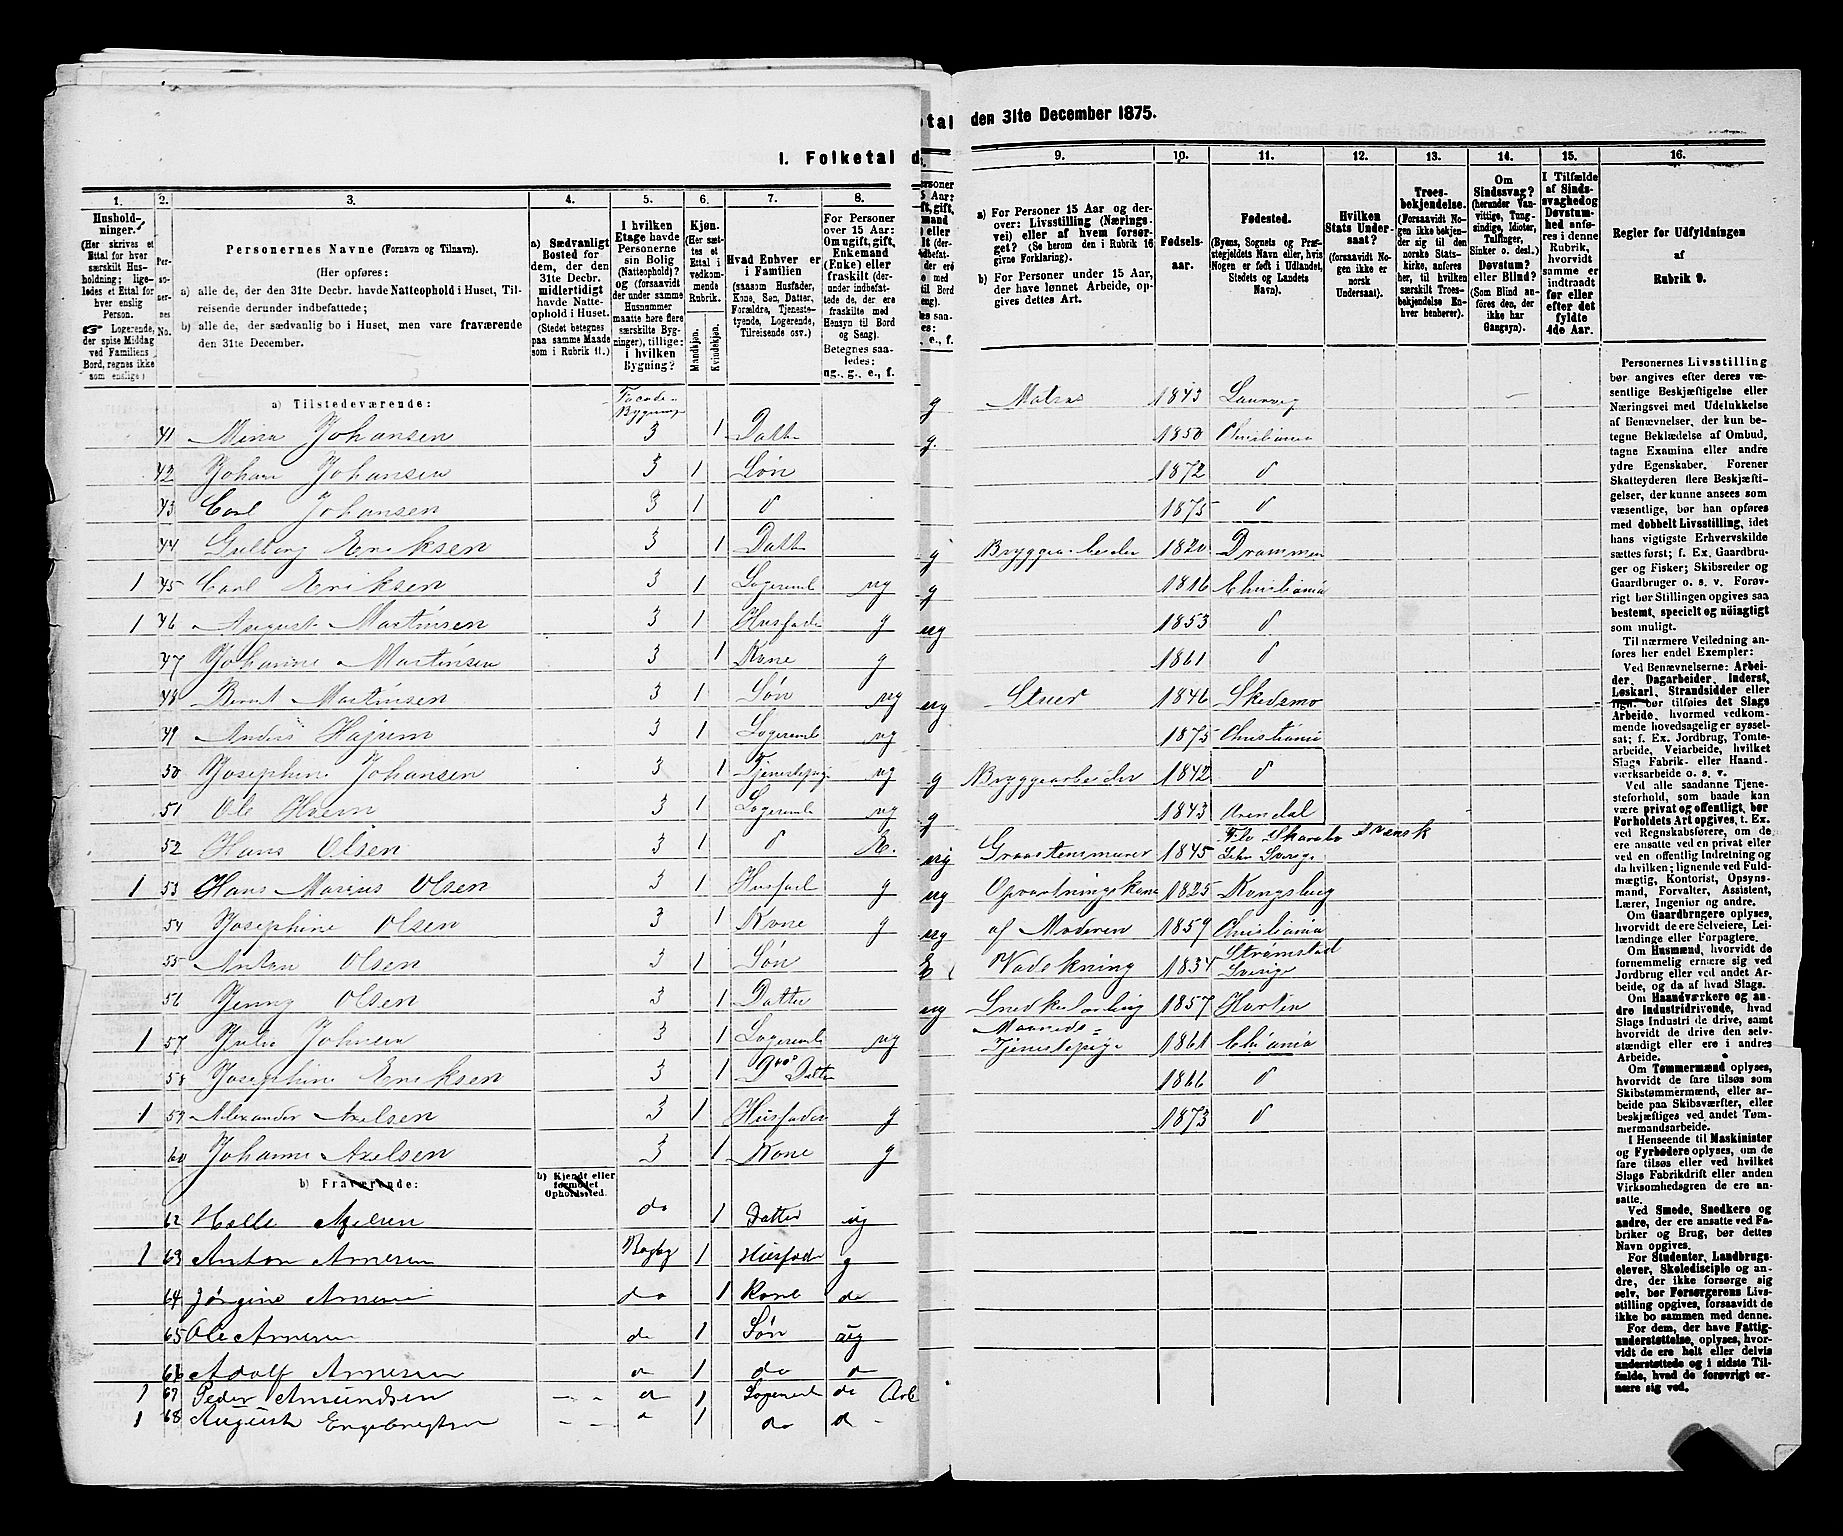 I. Folketal d.
tal den 31te December 1875.
1.
2.
3.
4.
5.
6.
7.
8.
Hushold-
ninger.
(Her skrives et
Ettal for hver
særskilt Hus-
holdning; lige-
ledes et Ettal for
hver enslig
Person.
Logerende,
der spise Middag
ved Familiens
Bord, regnes ikke
som enslige)
Per-
so-
ner-
nes
No.
Personernes Navne (Fornavn og Tilnavn).
(Her opføres:
a) alle de, der den 31te Decbr. havde Natteophold i Huset, Til-
reisende derunder indbefattede;
b) alle de, der sædvanlig bo i Huset, men vare fraværende
den 31te December.
a) Sædvanligt
Bosted for
dem, der den
31te Decbr.
midlertidigt
havde Natte-
ophold i Huset.
(Stedet betegnes
paa samme Maade
som i Rubrik 11.)
I hvilken
Etage havde
Personerne
sin Bolig
(Natteophold)?
og (forsaavidt
der under samme
Husnummer
maatte høre flere
særskilte Byg-
ninger), tillige:
i hvilken
Bygning?
Kjøn.
(Her sæt-
tes et
Ettal i
vedkom-
mende
Rubrik.
Mandkjøn.
Kvindekjøn.
Hvad Enhver er
i Familien
(saasom Husfader,
Kone, Søn, Datter,
Forældre, Tjeneste-
tyende, Logerende,
Tilreisende osv.)
For Personer
over 15 Aar:
Om ugift, gift,
Enkemand
(Enke) eller
fraskilt (der-
under indbefat-
tede de, der ere
fraskilte med
Hensyn til Bord
og Seng).
Betegnes saa-
ledes:
ug., g., e., f.
a) Tilstedeværende:
Facade-
Bygning
41 Mina Johansen 3 1 Datt
42 Johan Johansen 3 1 Søn
43 Carl Johansen 3 1 d
44 Gulborg Eriksen 3 1 Datt
1 45 Carl Eriksen 3 1 Logerende ug
1 46 August Martinsen 3 1 Husfader g
47 Johanne Martinsen 3 1 Kone g
48 Bernt Martinsen 3 1 Søn ug
49 Anders 3 1 Logerende ug
50 Josephine Johansen 3 1 Tjenestepige ug
51 Ole 3 1 Logerende ug
52 Hans Olsen 3 1 d E.
1 53 Hans Marius Olsen 3 1 Husfad g
54 Josephine Olsen 3 1 Kone g
55 Anton Olsen 3 1 Søn
56 Jenny Olsen 3 1 Datter
1 57 Julie 3 1 Logerende ug
58 Josephine Eriksen 3 1 Datter
1 59 Alexander Axelsen 3 1 Husfader g
60 Johanne Axelsen 3 1 Kone g
b) Fraværende:
b) Kjendt eller
formodet
Opholdssted.
62 Axelsen do 1 Datter ug
1 63 Anton Arnesen Bagbg 1 Husfade g
64 Jørgine Arnesen do 1 Kone do
65 Ole Arnesen do 1 Søn ug
66 Adolf Arnesen d 1 do d
1 67 Peder Amundsen - - d 1 Logerende do Arb
1 68 August - - d 1 do d -
9.
10.
11.
12.
13.
14.
15.
16.
a) For Personer 15 Aar og der-
over: Livsstilling (Nærings-
vei) eller af hvem forsør-
get? (Se herom den i Rubrik 16
givne Forklaring).
b) For Personer under 15 Aar,
der have lønnet Arbeide, op-
gives dettes Art.
Fødsels-
aar.
Fødested.
(Byens, Sognets og Præ-
stegjeldets Navn eller, hvis
Nogen er født i Udlandet,
Stedets og Landets
Navn).
Hvilken
Stats Under-
saat?
(forsaavidt No-
gen ikke er
norsk
Undersaat).
Troes-
bekjendelse.
(Forsaavidt No-
gen ikke bekjen-
der sig til den
norske Stats-
kirke, anføres
her, til hvilken
særskilt Troes-
bekjendelse En-
hver benhører).
Om
Sindssvag?
(herunder Van-
vittige, Tung-
sindige, Idioter,
Tullinger,
Sinker o. desl.)
Døvstum?
eller Blind?
(Som Blind an-
føres den, der
ikke har
Gangsyn).
I Tilfælde
af Sinds-
svaghed og
Døvstum-
hed anfø-
res i denne
Rubrik,
hvorvidt
samme er
indtraadt
før eller
efter det
fyldte
4de Aar.
Regler for Udfyldningen
af
Rubrik 9.
g Matros 1843 Laurvig
g. 1850 Christiania
1872 d
1875 d
g Bryggearbeider 1820 Drammen
g 1816 Christiania
ug 1853 d
1861 d
ug Stuer 1846 Skedsmo
1875 Christiania
g Bryggearbeider 1842 d
g 1843 Arendal
ug Graastensmurer 1845 Sverige svensk
ug Opvartningskone 1825 Kongsberg
ug af Moderen 1859 Christiania
E 1834 Strømstad
Sverige
ug Snedkerlærling 1857 Horten
Maaneds=
Tjenestepige 1861 Chiania
1866 d
1873 d
Personernes Livsstilling
bør angives efter deres væ-
sentlige Beskjæftigelse eller
Næringsvei med Udelukkelse
af Benævnelser, der kun be-
tegne Beklædelse af Ombud,
tagne Examina eller andre
ydre Egenskaber. Forener
Skatteyderen flere Beskjæfti-
gelser, der kunne ansees som
væsentlige, bør han opføres
med dobbelt Livsstilling, idet
hans vigtigste Erhvervskilde
sættes først; f. Ex. Gaardbru-
ger og Fisker; Skibsreder og
Gaardbruger o. s. v. Forøv-
rigt bør Stillingen opgives saa
bestemt, specielt og nöiagtigt
som muligt.
Til nærmere Veiledning an-
føres her endel Exempler:
Ved Benævnelserne: Arbei-
der, Dagarbeider, Inderst,
Løskarl, Strandsidder eller
lign. bør tilføies det Slags
Arbeide, hvormed vedkom-
mende hovedsagelig er syssel-
sat; f. Ex. Jordbrug, Tomte-
arbeide, Veiarbeide, hvilket
Slags Fabrik- eller Haand-
værksarbeide o. s. v.
Ved alle saadanne Tjene-
steforhold, som baade kan
være privat og offentligt, bør
Forholdets Art opgives, t. Ex.
ved Regnskabsførere, om de
ere ansatte ved en privat eller
ved en offentlig Indretning og
da hvilken; lignende ved Fuld-
mægtig, Kontorist, Opsyns-
mand, Forvalter, Assistent,
Lærer, Ingeniør og andre.
Om Gaardbrugere oplyses,
hvorvidt de ere Selveiere, Lei-
lændinge eller Forpagtere.
Om Husmænd, hvorvidt de
fornemmelig ernære sig ved
Jordbrug eller ved andet Ar-
beide, og da af hvad Slags.
Om Haandværkere og an-
dre Industridrivende, hvad
Slags Industri de drive, samt
hvorvidt de drive den selv-
stændigt eller ere i andres
Arbeide.
Om Tømmermænd oplyses,
hvorvidt de fare tilsøs som
Skibstømmermænd, eller ar-
beide paa Skibsværfter, eller
beskjæftiges ved andet Tøm-
mermandsarbeide.
I Henseende til Maskinister
og Fyrbødere oplyses, om de
fare tilsøs eller ved hvilket
Slags Fabrikdrift eller anden
Virksomhedsgren de ere an-
satte.
Ved Smede, Snedkere og
andre, der ere ansatte ved Fa-
briker og Brug, bør dettes
Navn opgives.
For Studenter, Landbrugs-
elever, Skoledisciple og an-
dre, der ikke forsørge sig
selv, bør Forsørgerens Livs-
stilling opgives, forsaavidt de
ikke bo sammen med denne.
For dem, der have Fattig-
understøttelse, oplyses, hvor-
vidt de ere helt eller delvis
understøttede og i sidste Til-
fælde, hvad de forøvrigt er-
nære sig ved.